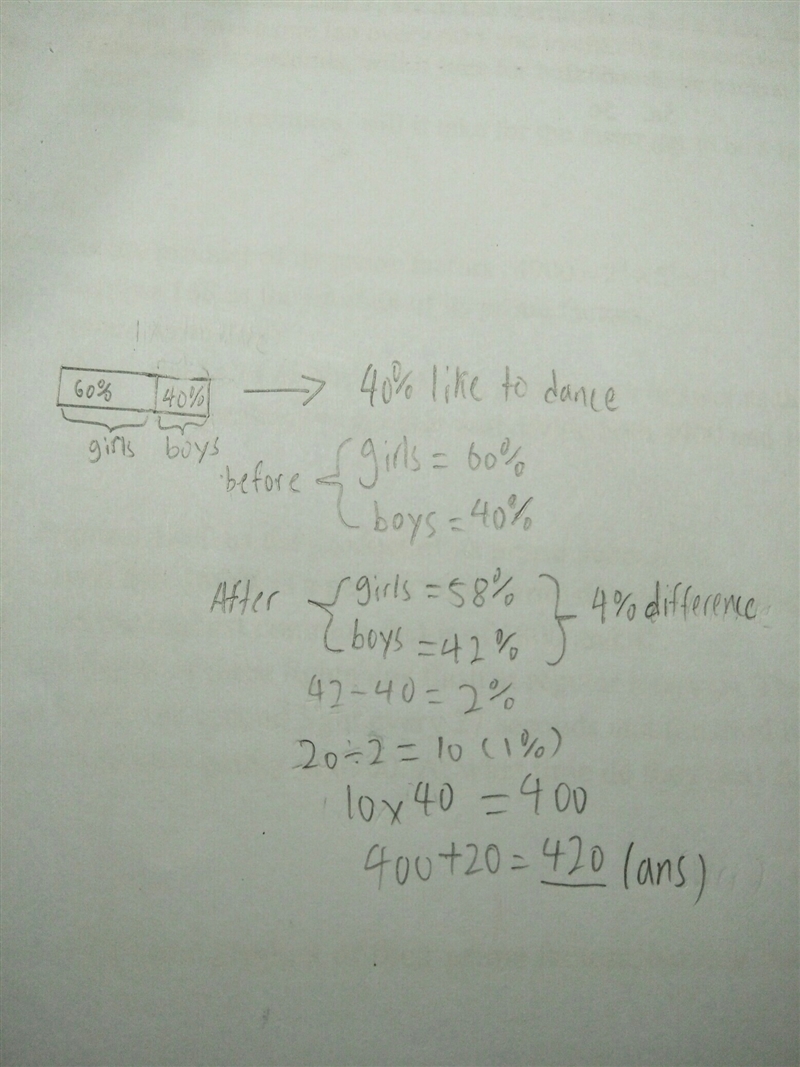 60% 40% → 40% like to dance
girls boys
before { girls = 60%
boys = 40%
After { girls = 58%
boys = 42% } 4% difference
42 - 40 = 2%
20 ÷ 2 = 10 (1%)
10 x 40 = 400
400 + 20 = 420 (ans)